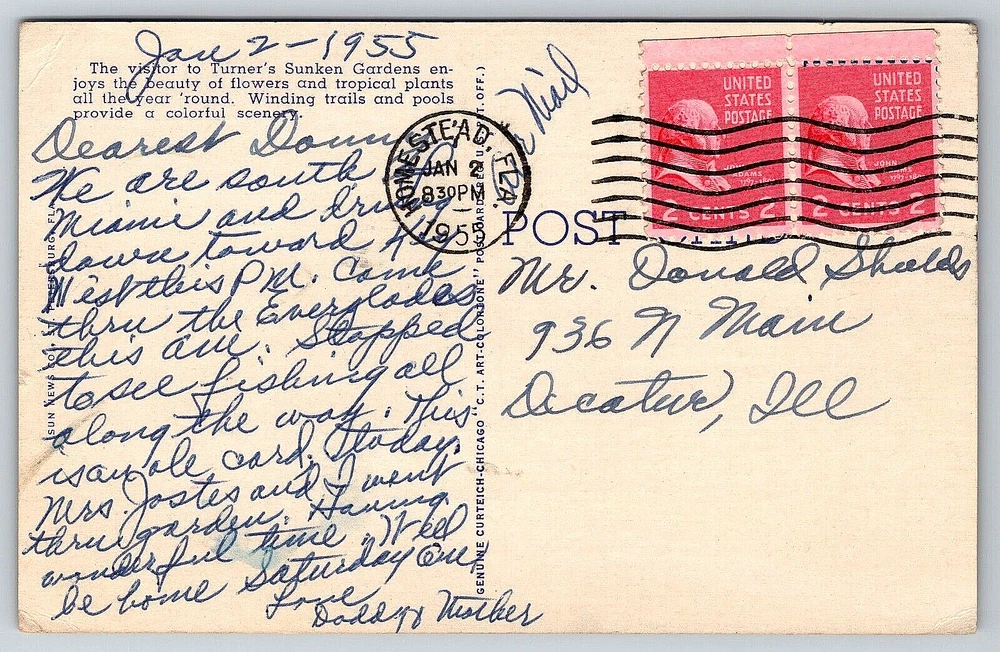 Jan 2 - 1955
The visitor to Turner's Sunken Gardens en-
joys the beauty of flowers and tropical plants
all the year 'round. Winding trails and pools
provide a colorful scenery.
Dearest Donn
We are south
Miami and driving
down toward Key
West this P.M. Came
thru the Everglades
this am. Stopped
to see fishing all
along the way. This
is an ole card. Today
Mrs. Jostes and I went
thru garden. Having
wonderful time. Well
be home Saturday Eve,
Love
Daddy & Mother
SUN NEWS CO.,
GENUINE CURTEICH-CHICAGO "C.T. ART-COLORTONE" POST CARD (REG. U. S. PAT. OFF.)
HOMESTEAD, FLA.
JAN 2
830PM
1955
Mail
UNITED
STATES
POSTAGE
JOHN
ADAMS
1797-1801
2 CENTS 2
UNITED
STATES
POSTAGE
JOHN
ADAMS
1797-1801
2 CENTS 2
POST CARD
Mr. Donald Shields
936 N Main
Decatur, Ill